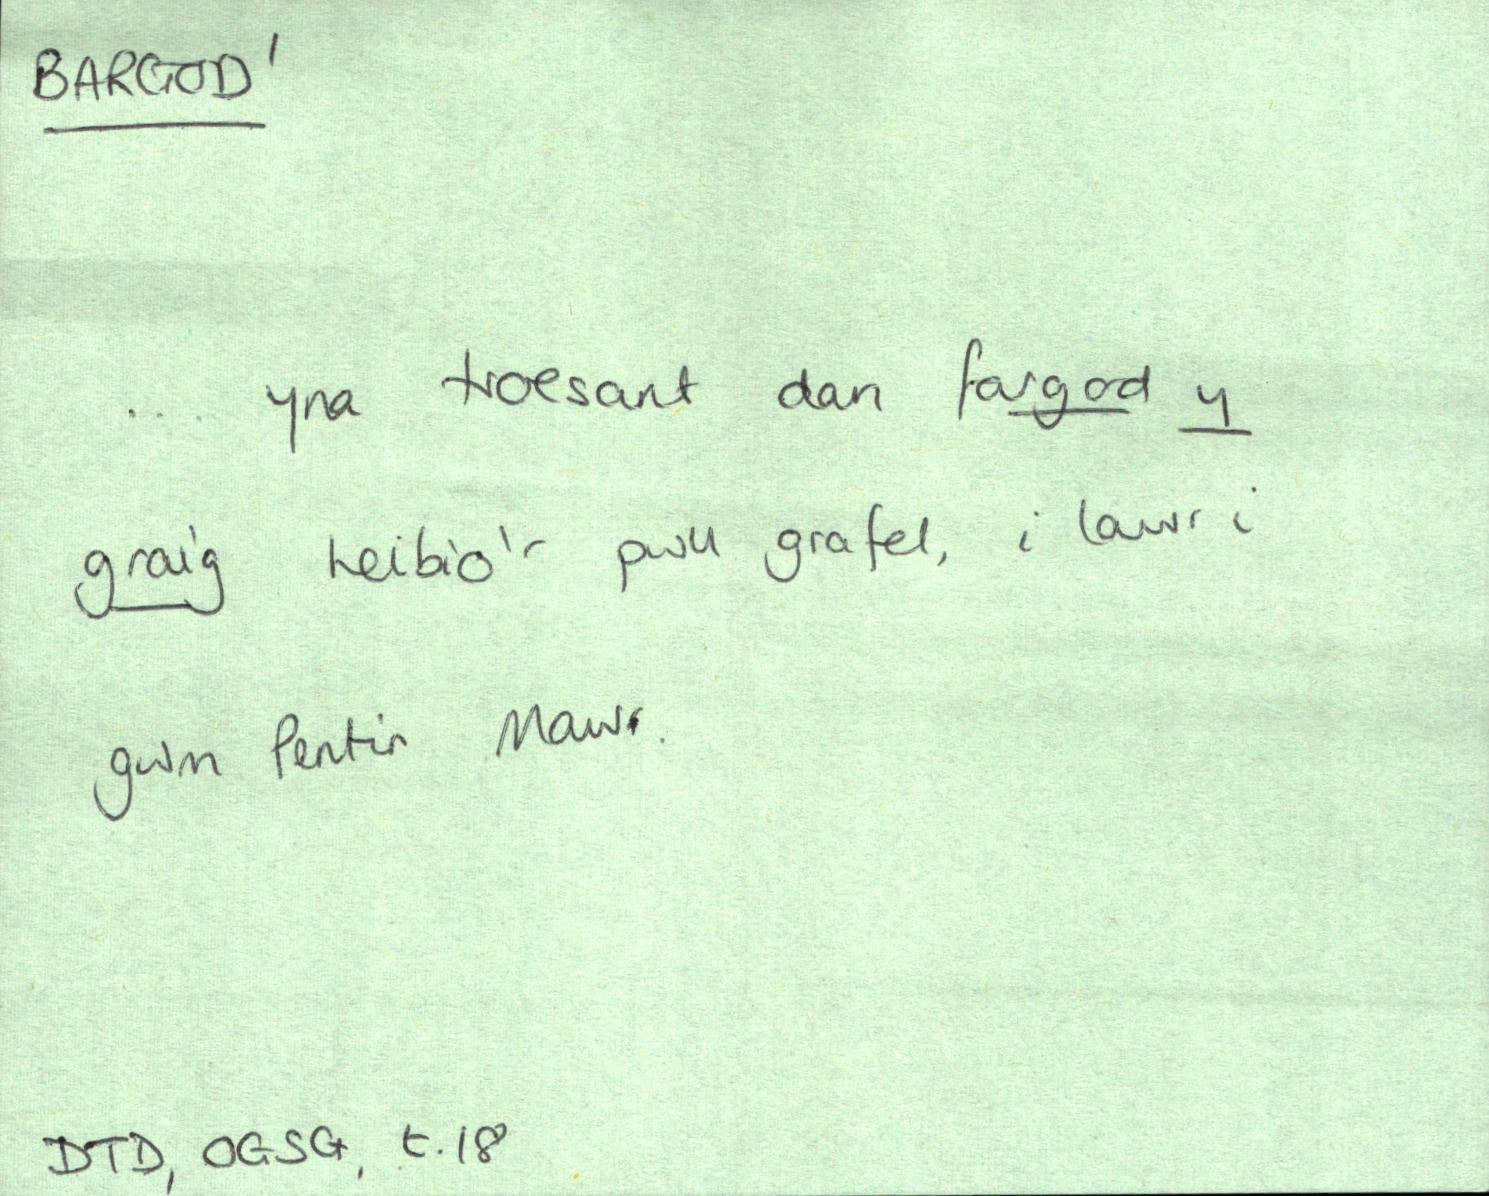 BARGOD'
.... yna troesant dan fargod y
graig heibio'r pwll grafel, i lawr i
gwm Pentir Mawr.
DTD, OGSG, t.18